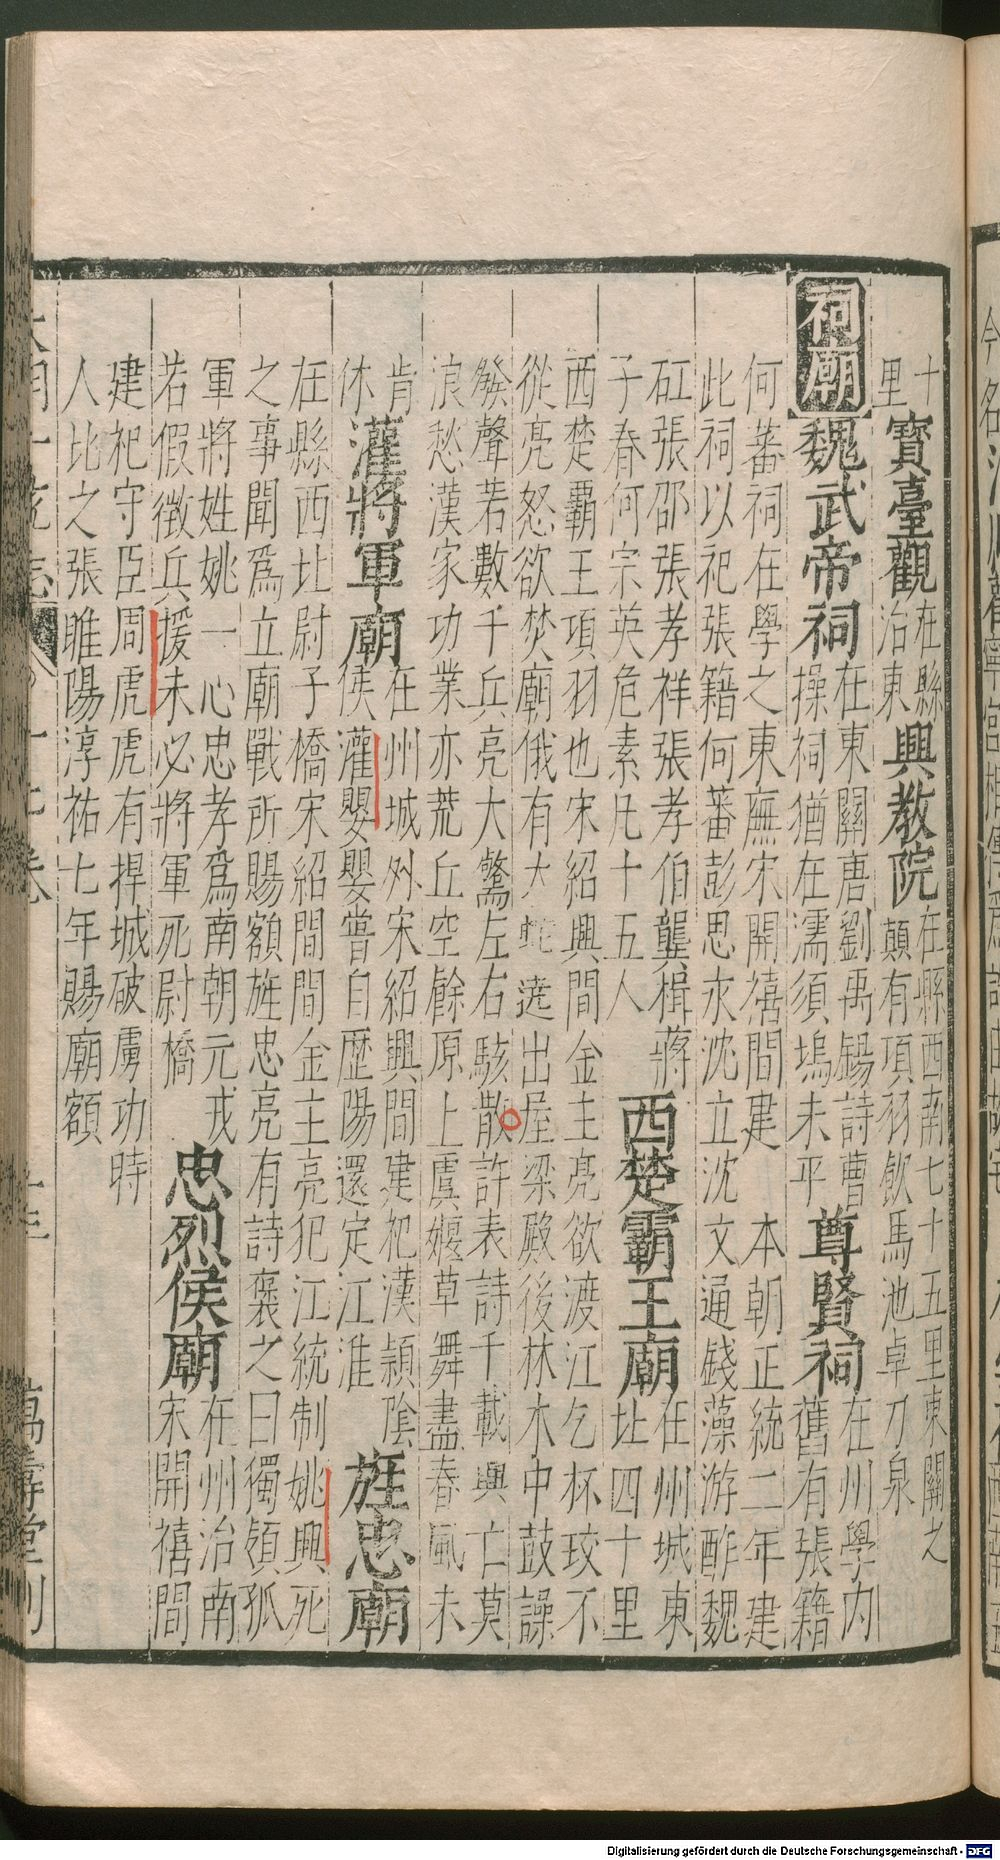 十
里
寶臺觀
在縣
治東
興教院
在縣西南七十五里東關之
顛有項羽飲馬池卓刀泉
祠廟
魏武帝祠
在東關唐劉禹錫詩曹
操祠猶在濡須塢未平
尊賢祠
在州學内
舊有張籍
何蕃祠在學之東廡宋開禧間建 本朝正統二年建
此祠以祀張籍何蕃彭思永沈立沈文通錢藻游酢魏
矼張邵張孝祥張孝伯龔楫蔣
子春何宗英危素凡十五人
西楚霸王廟
在州城東
北四十里
西楚霸王項羽也宋紹興間金主亮欲渡江乞杯珓不
從亮怒欲焚廟俄有大蛇遶出屋梁殿後林木中鼓譟
發聲若數千兵亮大驚左右駭散許表詩千載興亡莫
浪愁漢家功業亦荒丘空餘原上虞姬草舞盡春風未
肯
休
灌將軍廟
在州城外宋紹興間建祀漢潁陰
侯灌嬰嬰嘗自歷陽還定江淮
旌忠廟
在縣西北尉子橋宋紹間間金主亮犯江統制姚興死
之事聞爲立廟戰所賜額旌忠亮有詩褒之曰獨領孤
軍將姓姚一心忠孝爲南朝元戎
若假徵兵援未必將軍死尉橋
忠烈侯廟
在州治南
宋開禧間
建祀守臣周虎虎有捍城破虜功時
人比之張睢陽淳祐七年賜廟額
萬壽堂刊
Digitalisierung gefördert durch die Deutsche Forschungsgemeinschaft - DFG